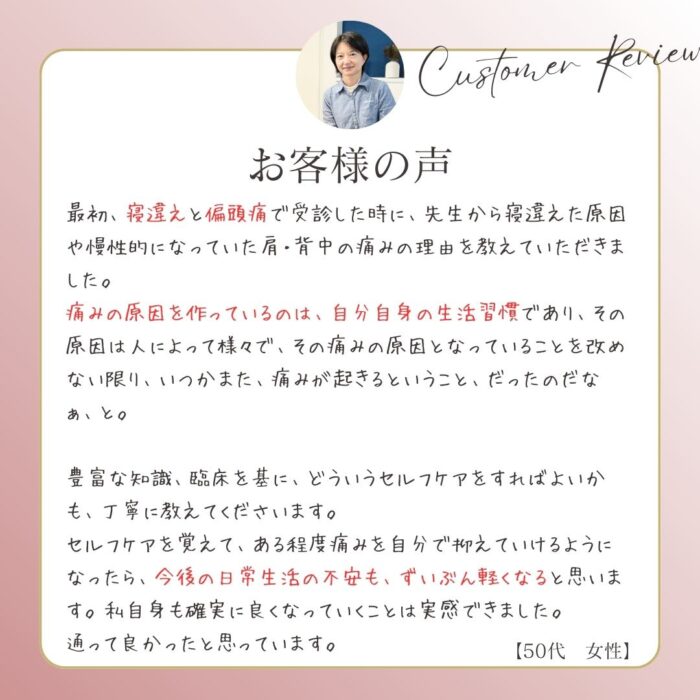 Customer Review
お客様の声
最初、寝違えと偏頭痛で受診した時に、先生から寝違えた原因
や慢性的になっていた肩・背中の痛みの理由を教えていただきま
した。
痛みの原因を作っているのは、自分自身の生活習慣であり、その
原因は人によって様々で、その痛みの原因となっていることを改め
ない限り、いつかまた、痛みが起きるということ、だったのだな
ぁ、と。
豊富な知識、臨床を基に、どういうセルフケアをすればよいか
も、丁寧に教えてくださいます。
セルフケアを覚えて、ある程度痛みを自分で抑えていけるように
なったら、今後の日常生活の不安も、ずいぶん軽くなると思いま
す。私自身も確実に良くなっていくことは実感できました。
通って良かったと思っています。
【50代　女性】